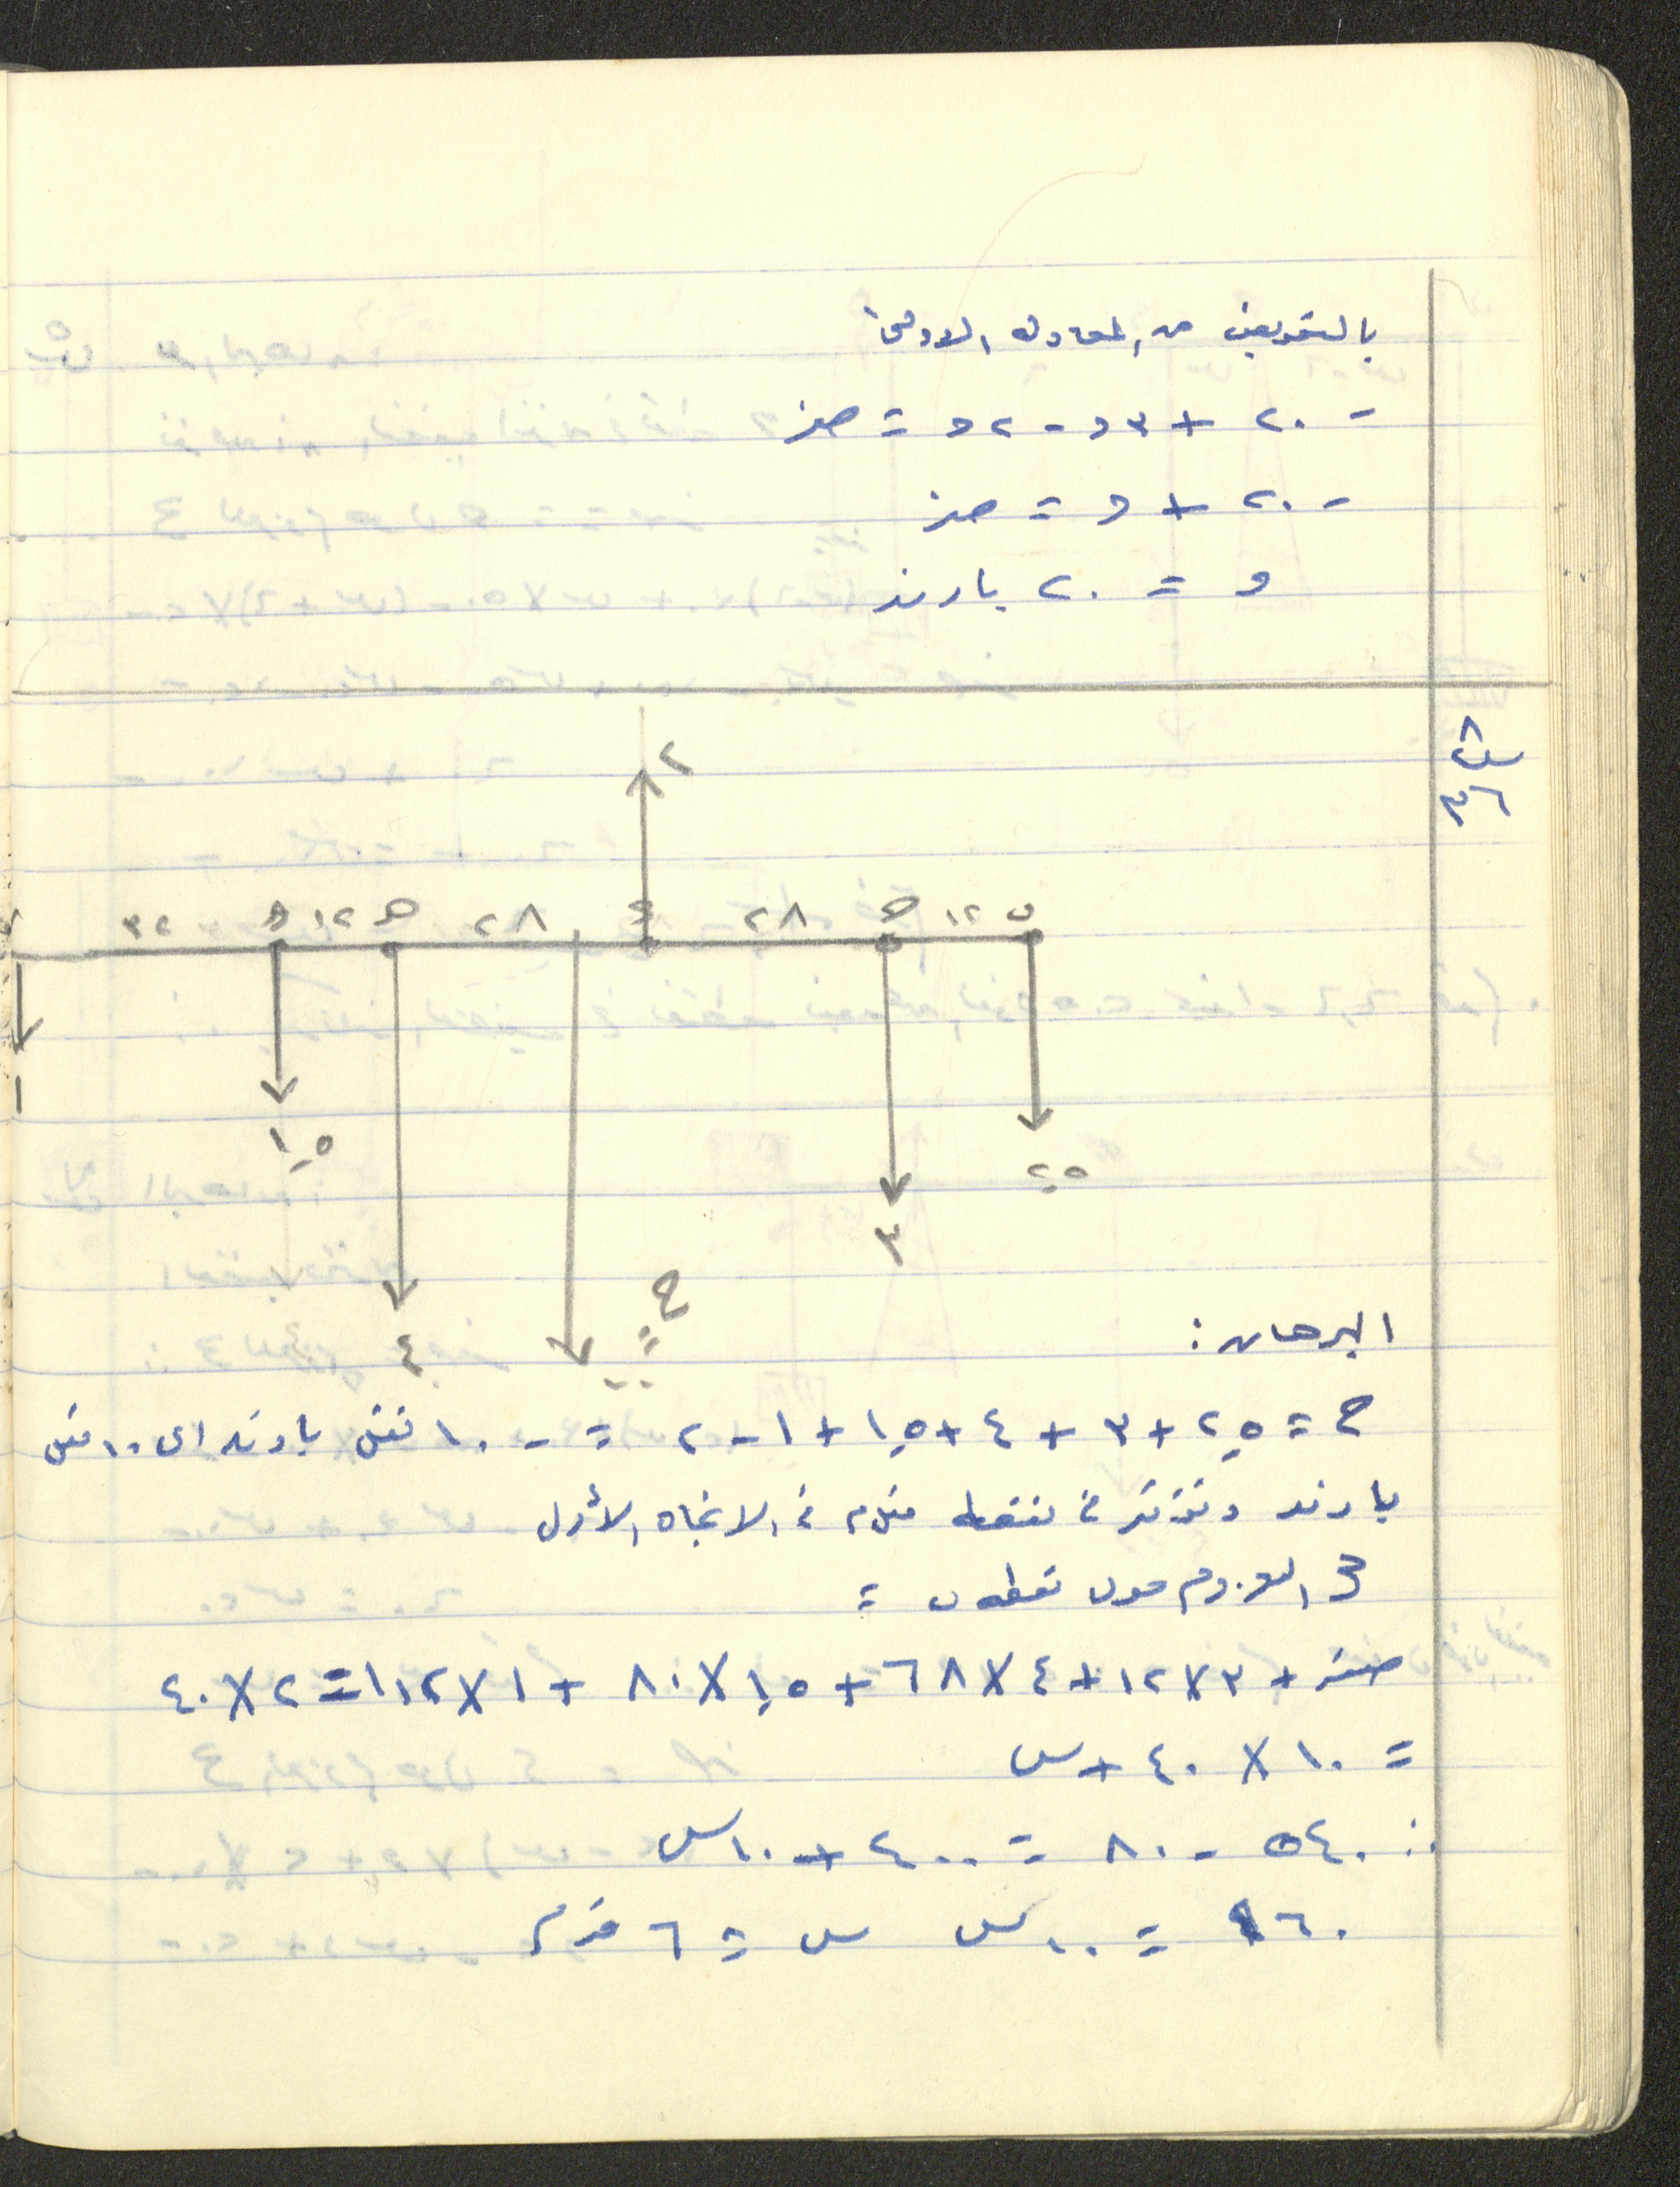 بالتعويض من المعادله الاولى
- ٢٠ + ٣و - ٢و = صفر
- ٢٠ + و = صفر
و = ٢٠ باوند
س ٨
٣٦
٢
ب ١٢ ه ٢٨ و ٢٨ ه ١٢ ٣٢
١
١٫٥
٢٫٥
٣
ح
٤
البرهان :
ح = ٢٫٥ + ٣ + ٤ + ١٫٥ + ١ - ٢ = - ١٠ ثقل باوند اى ١٠ ثقل
باوند وتؤثر فى نقطه مثل م فى الاتجاه الأول
ع العزوم حول نقطه ب =
صفر + ٣ × ١٢ + ٤ × ٦٨ + ١٫٥ × ٨٠ + ١ × ١١٢ = ٢ × ٤٠
= ١٠ × ٤٠ + س
∴ ٥٤٠ - ٨٠ = ٤٠٠ + ١٠س
٦٠ = ١٠س س = ٦ قدم